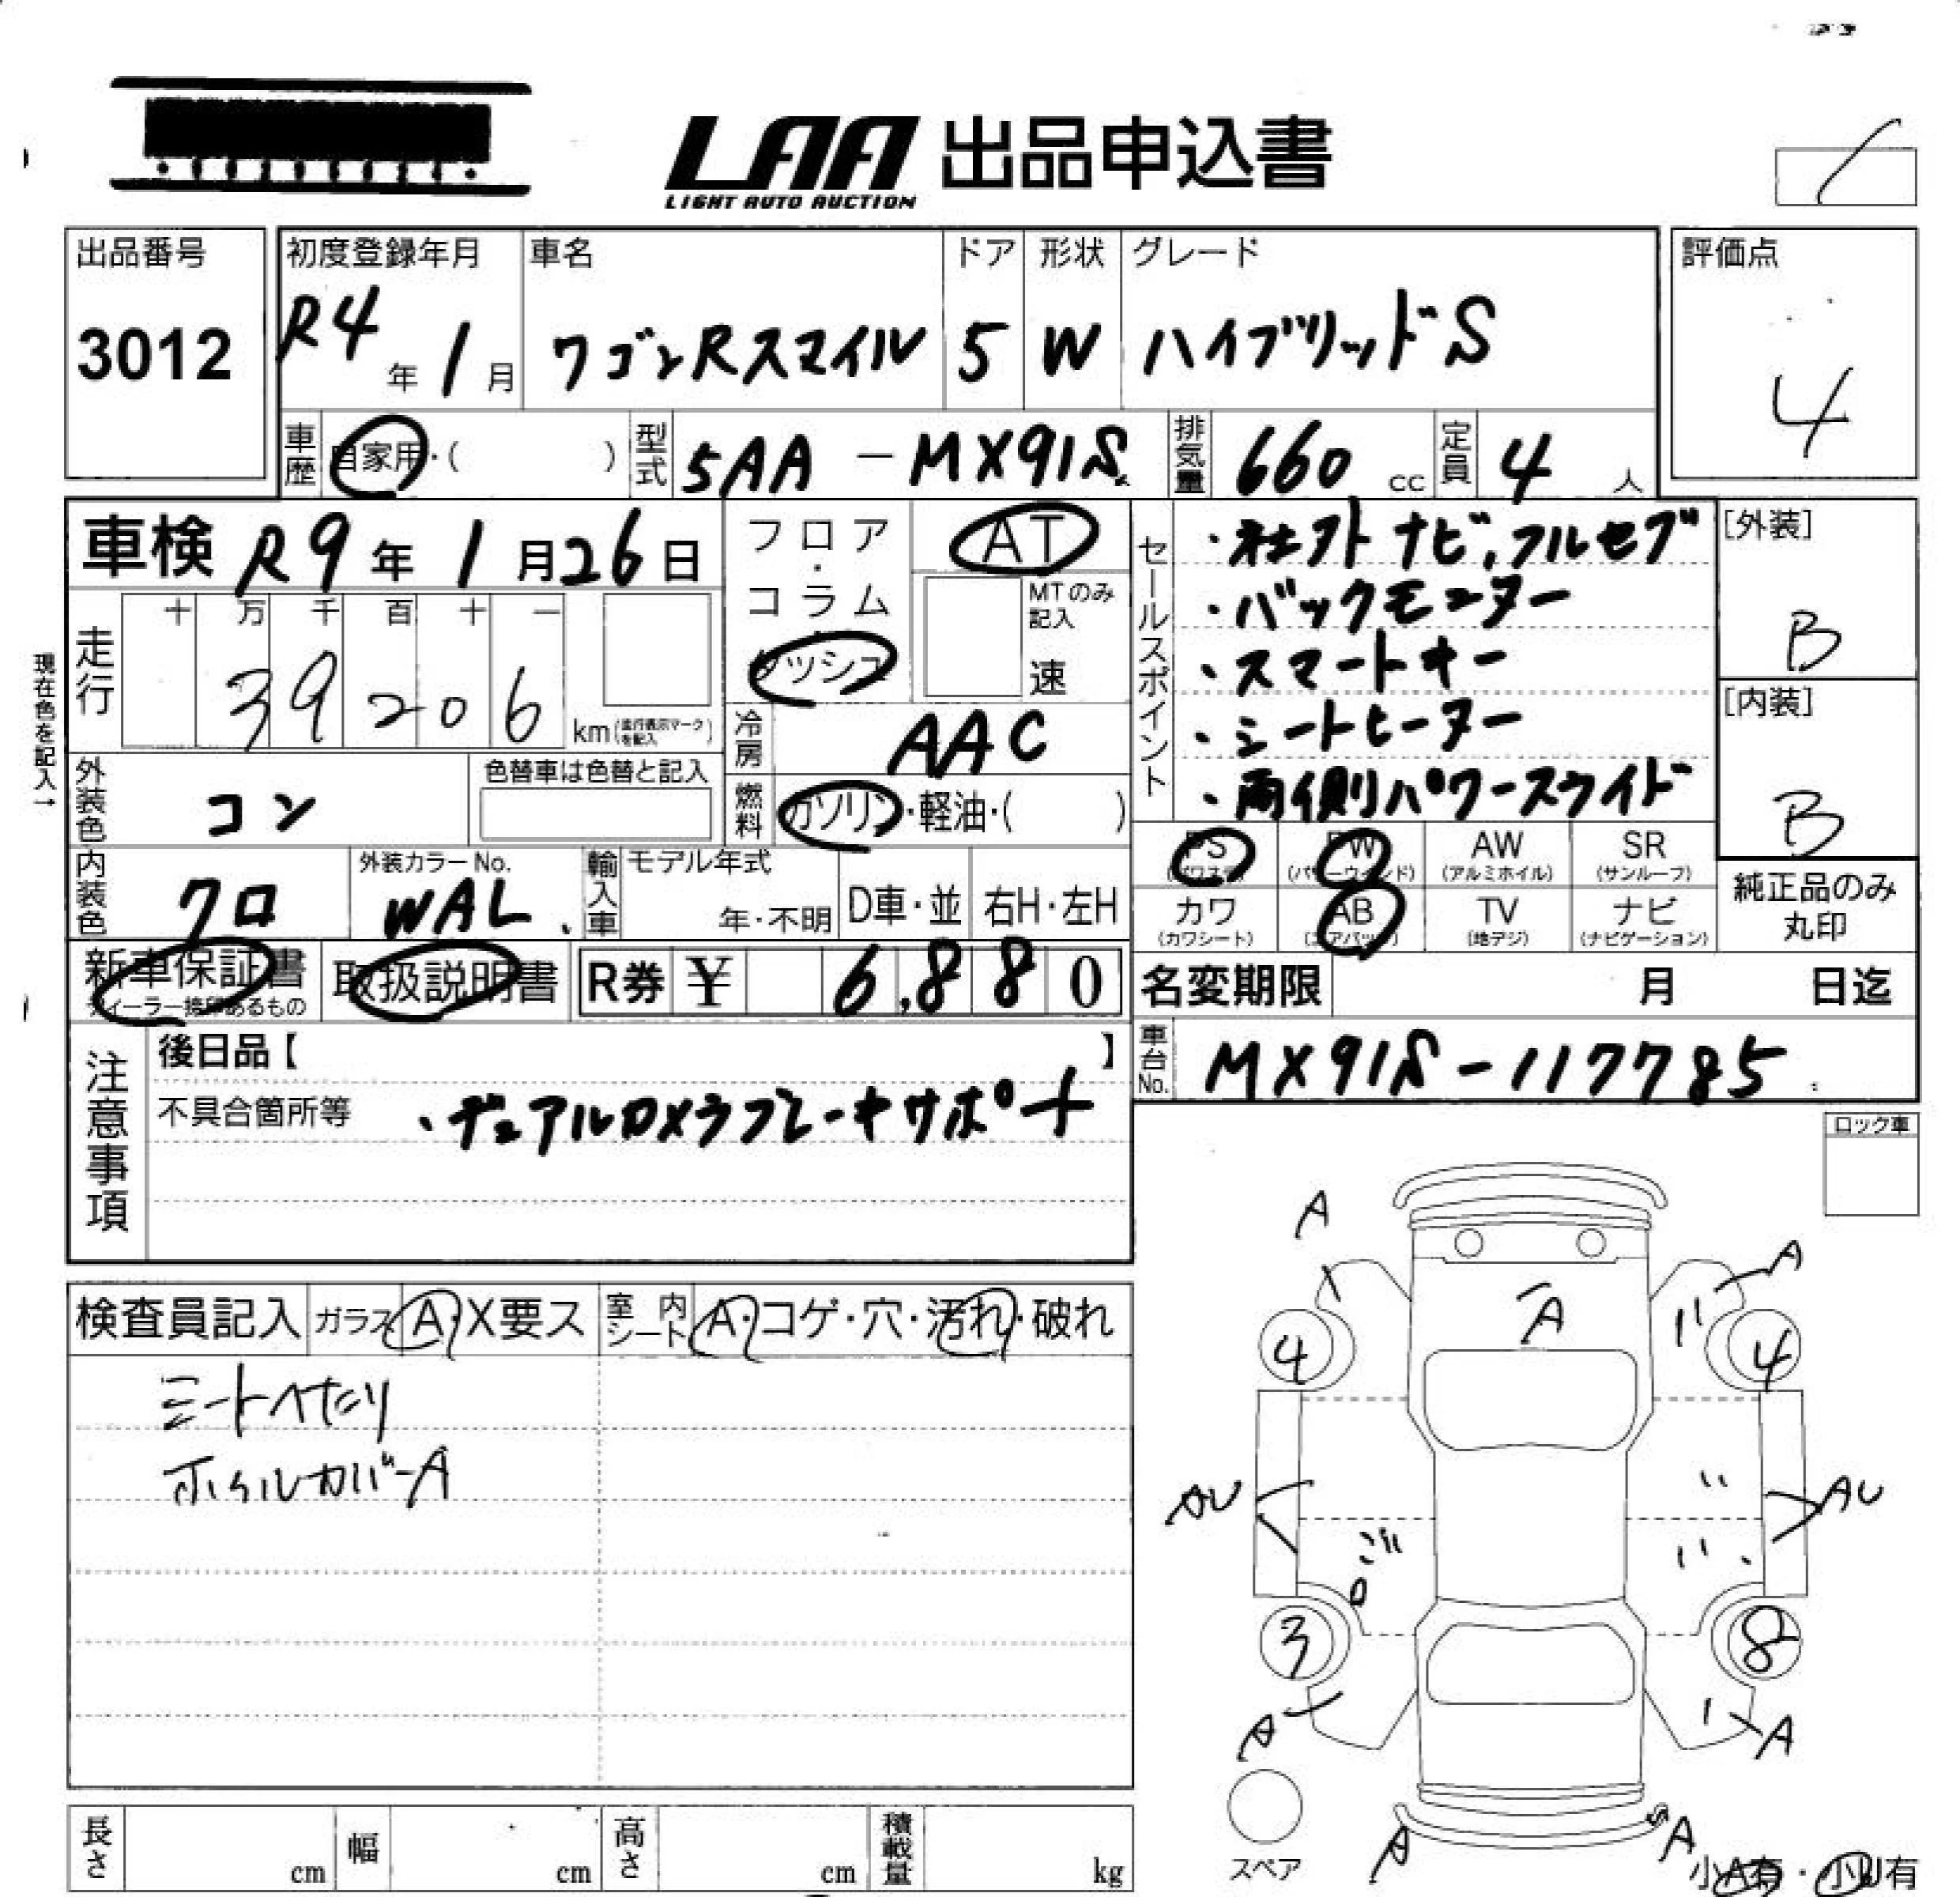 LAA 出品申込書
LIGHT AUTO AUCTION
出品番号 初度登録年月 車名 ドア 形状 グレード 評価点
3012 R4年 1月 ワゴンRスマイル 5 W ハイブリッドS 4
車歴 自家用・( ) 型式 5AA-MX91S 排気量 660 cc 定員 4 人
車検 R9年 1月26日 フロア・コラム ダッシュ AT
MTのみ記入 速
セールスポイント
・社外ナビ,フルセグ
・バックモニター
・スマートキー
・シートヒーター
・両側パワースライド
[外装] B
[内装] B
現在色を記入→
走行 十 万 千 百 十 一
39206 km(走行表示マークを記入)
冷房 AAC
外装色 コン 色替車は色替と記入
燃料 ガソリン・軽油・( )
PS (パワステ) PW (パワーウインド) AW (アルミホイル) SR (サンルーフ)
カワ (カワシート) AB (エアバッグ) TV (地デジ) ナビ (ナビゲーション)
純正品のみ丸印
内装色 クロ 外装カラーNo. WAL 輸入車 モデル年式 年・不明 D車・並 右H・左H
新車保証書 ディーラー捺印あるもの 取扱説明書 R券 ¥ 6,880
名変期限 月 日迄
車台No. MX91S-117785
注意事項 後日品【 】
不具合箇所等 ・デュアルカメラブレーキサポート
ロック車
検査員記入 ガラス A・X要ス 室内シート A・コゲ・穴・汚れ・破れ
シートへたり
ホイルカバーA
A
A
A
4 4
AU AU
3 8
A A
スペア
A A
小A有・小U有
長さ cm 幅 cm 高さ cm 積載量 kg